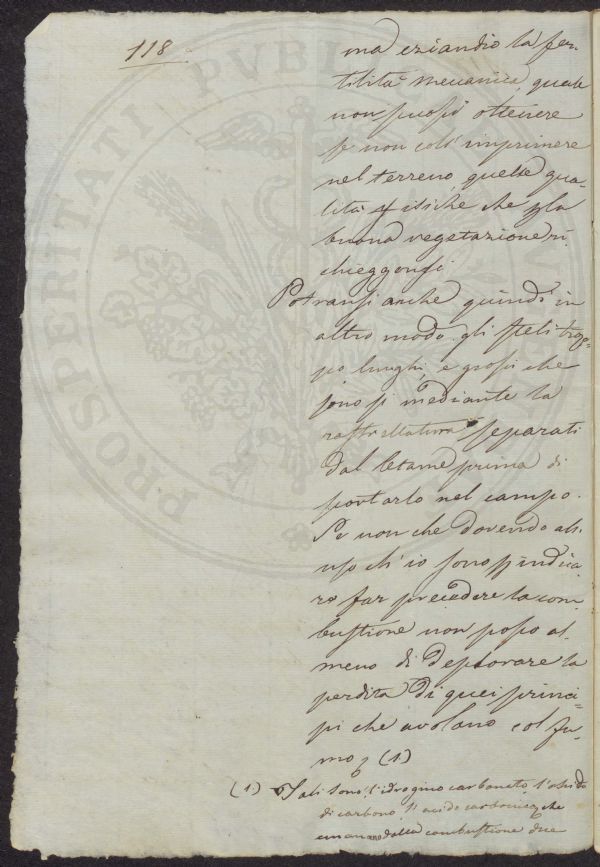 118
ma eziandio la fer-
tilità meccanica, quale
non puossi ottenere
se non coll'imprimere
nel terreno quelle qua-
lità fisiche che p la
buona vegetazione ri
chieggonsi
Potransi anche quindi in
altro modo gli steli trop-
po lunghi, e grossi che
sonosi mediante la
rastrellatura separati
dal letame prima di
portarlo nel campo.
Se non che dovendo all'
uso ch'io sono p indica
re far precedere la com
bustione non posso al-
meno di deplorare la
perdita di quei princi-
pi che avolano col fu-
mo, (1)
(1) Tali sono l'idrogino carbonato, l'ossido
di carbono, l'acido carbonico, che
emanano dalla combustione due
PROSPERITATI PUBLICAE